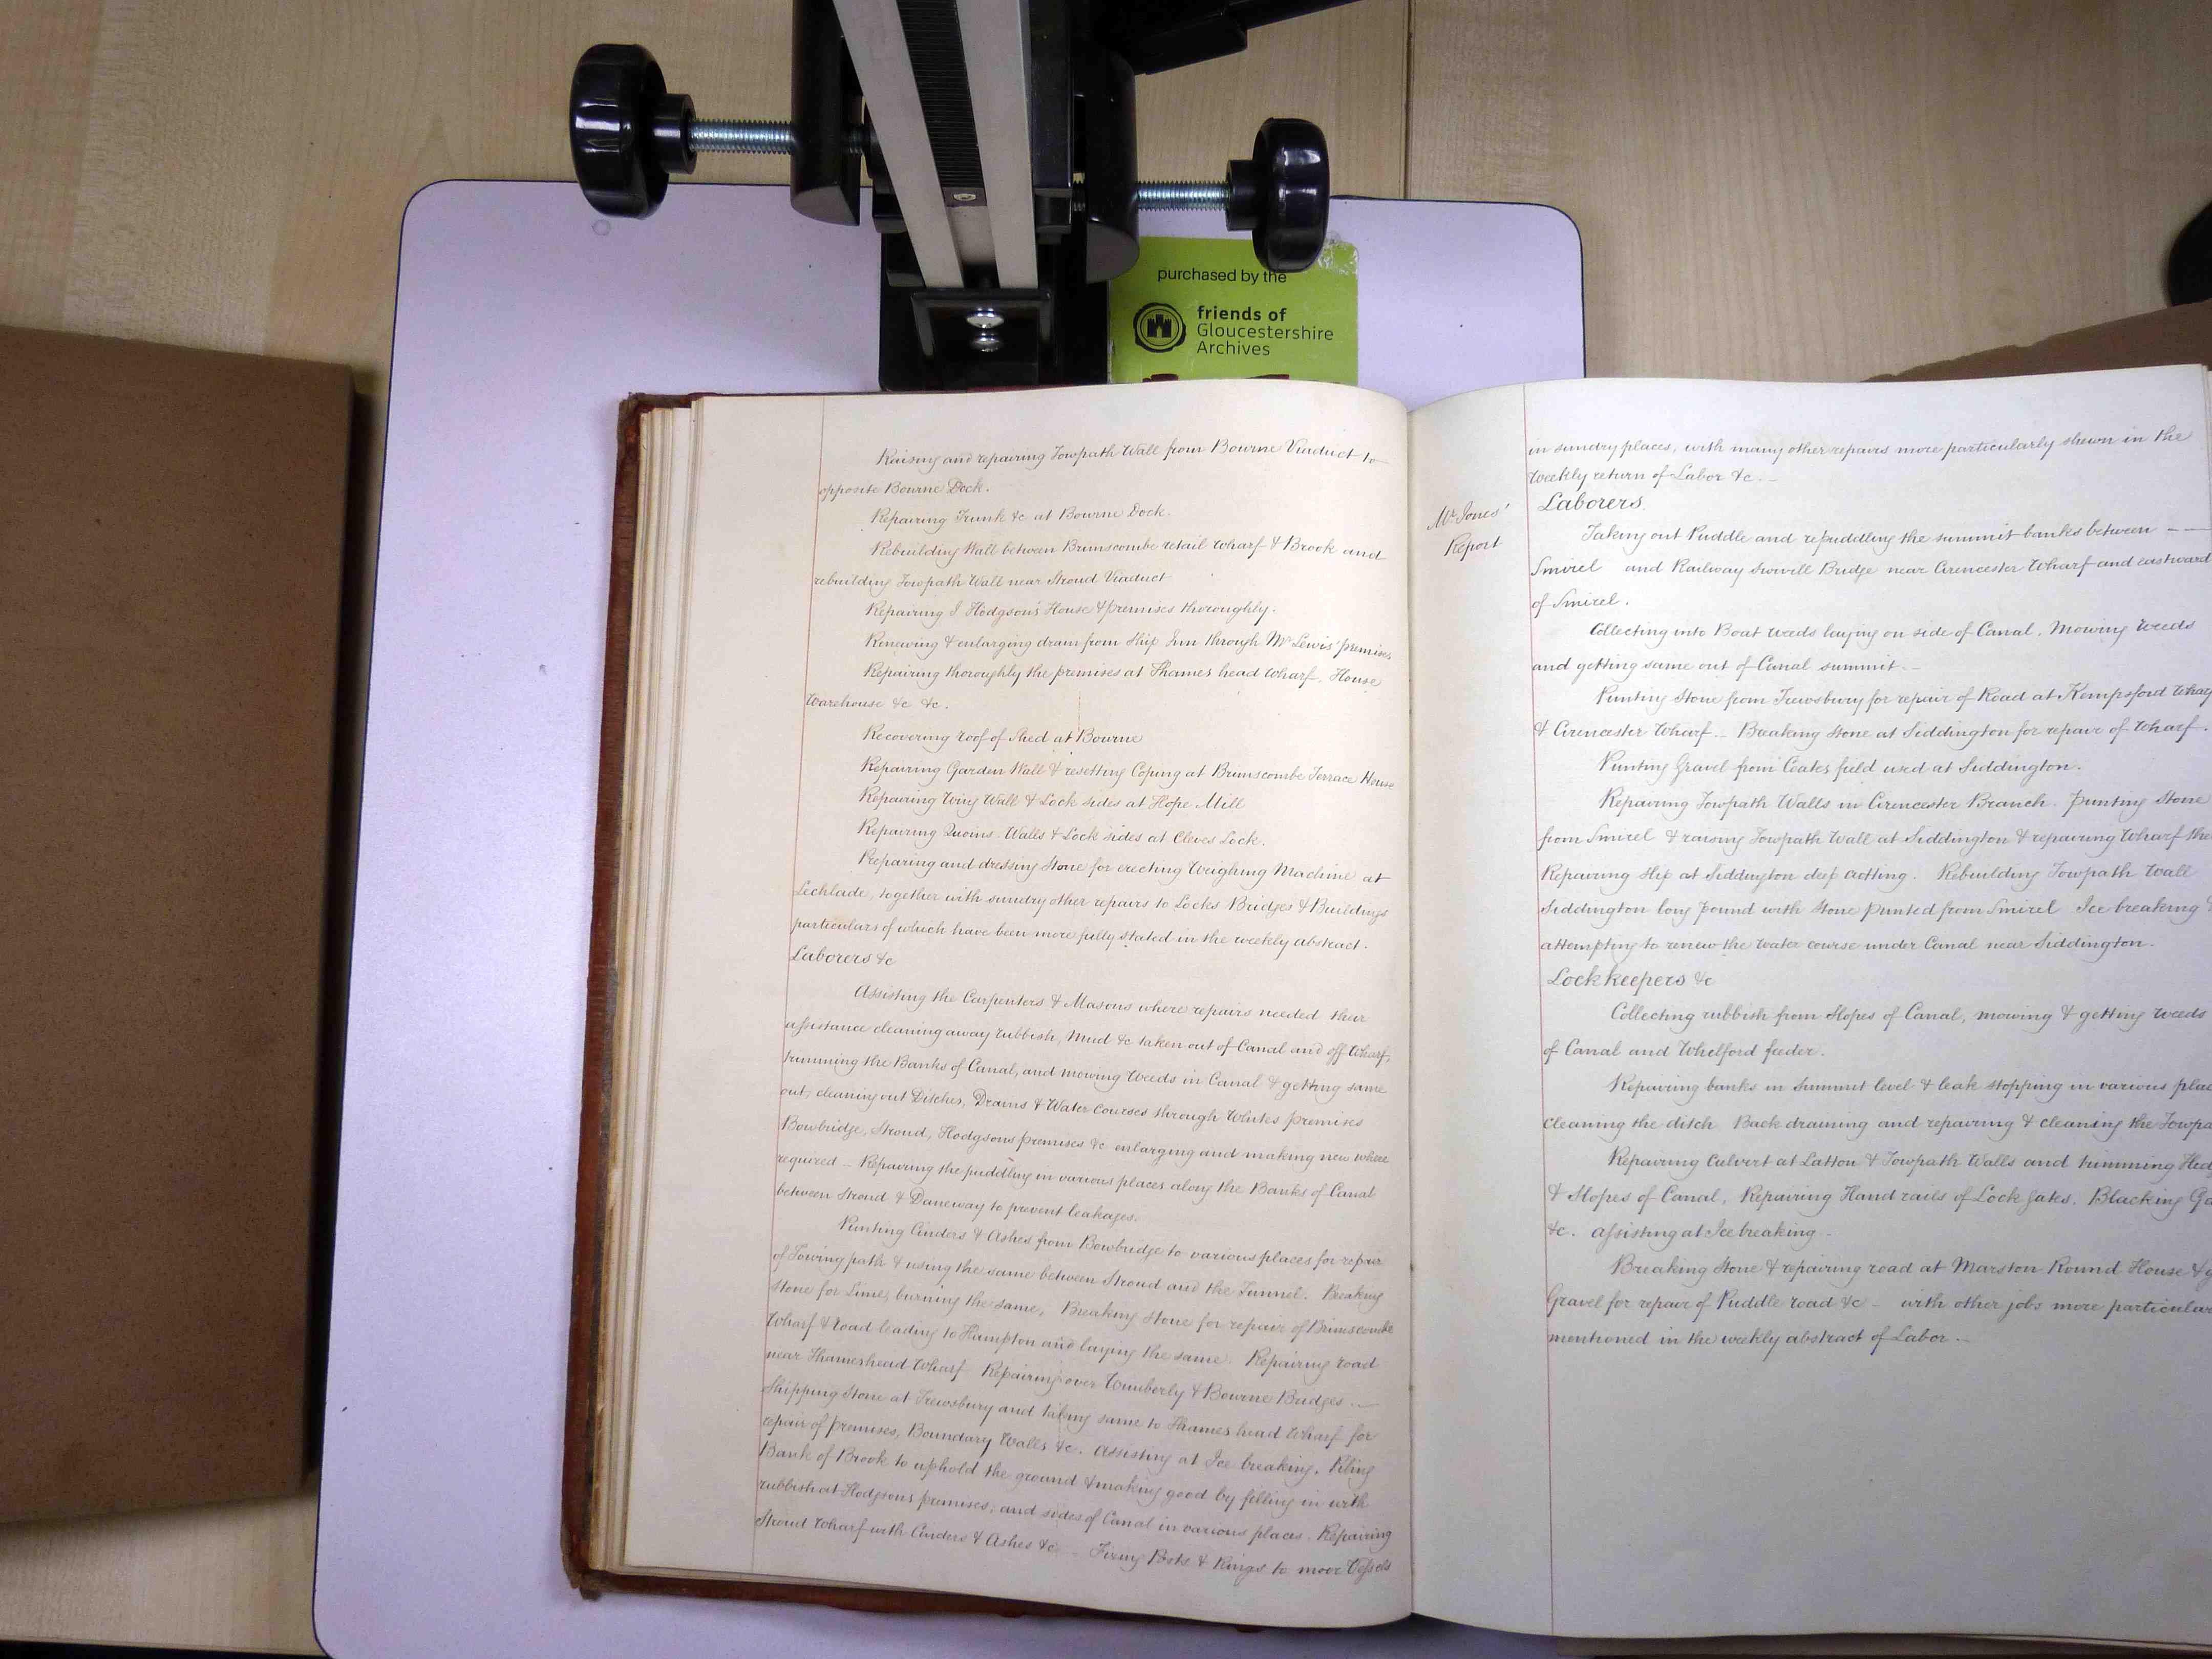 purchased by the
friends of
Gloucestershire
Archives
Raising and repairing Towpath Wall from Bourne Viaduct to
opposite Bourne Dock.
Repairing Trunk &c at Bourne Dock.
Rebuilding Wall between Brimscombe retail Wharf & Brook and
rebuilding Towpath Wall near Stroud Viaduct
Repairing J Hodgson's House & premises thoroughly.
Renewing & enlarging drain from Ship Inn through Mr Lewis' premises
Repairing thoroughly the premises at Thames head Wharf, House
Warehouse &c &c.
Recovering roof of Shed at Bourne
Repairing Garden Wall & resetting Coping at Brimscombe Terrace House
Repairing Wing Wall & Lock sides at Hope Mill
Repairing Quoins. Walls & Lock sides at Cleves Lock.
Preparing and dressing Stone for erecting Weighing Machine at
Lechlade, together with sundry other repairs to Locks Bridges & Buildings
particulars of which have been more fully stated in the weekly abstract.
Laborers &c
Assisting the Carpenters & Masons where repairs needed their
assistance cleaning away rubbish, Mud &c taken out of Canal and off Wharf,
trimming the Banks of Canal, and mowing Weeds in Canal & getting same
out, cleaning out Ditches, Drains & Water Courses through Whites premises
Bowbridge, Stroud, Hodgsons premises &c enlarging and making new where
required – Repairing the puddling in various places along the Banks of Canal
between Stroud & Daneway to prevent leakages.
Punting Cinders & Ashes from Bowbridge to various places for repair
of Towing path & using the same between Stroud and the Tunnel. Breaking
Stone for Lime, burning the same, Breaking Stone for repair of Brimscombe
Wharf & Road leading to Hampton and laying the same. Repairing road
near Thameshead Wharf Repairing over Wimberly & Bourne Bridges. –
Shipping Stone at Trewsbury and taking same to Thames head Wharf for
repair of premises, Boundary Walls &c. Assisting at Ice breaking. Piling
Bank of Brook to uphold the ground & making good by filling in with
rubbish at Hodgsons premises; and sides of Canal in various places. Repairing
Stroud Wharf with Cinders & Ashes &c – Fixing Posts & Rings to moor Vessels
in sundry places, with many other repairs more particularly shewn in the
Weekly return of Labor &c. –
Mr Jones'
Report
Laborers.
Taking out Puddle and repuddling the summit banks between – –
Smirel and Railway Swivill Bridge near Cirencester Wharf and eastward
of Smirel.
Collecting into Boat weeds laying on side of Canal. Mowing Weeds
and getting same out of Canal summit. –
Punting Stone from Trewsbury for repair of Road at Kempsford Whar
& Cirencester Wharf. – Breaking Stone at Siddington for repair of Wharf.
Punting Gravel from Coates field used at Siddington.
Repairing Towpath Walls in Cirencester Branch. Punting Stone
from Smirel & raising Towpath Wall at Siddington & repairing Wharf the
Repairing Slip at Siddington deep cutting. Rebuilding Towpath Wall
Siddington long pound with Stone punted from Smirel Ice breaking &
attempting to renew the water course under Canal near Siddington.
Lock keepers &c
Collecting rubbish from Slopes of Canal, mowing & getting weeds
of Canal and Whelford feeder.
Repairing banks in Summit level & leak stopping in various plac
cleaning the ditch Back draining and repairing & cleaning the Towpa
Repairing Culvert at Latton & Towpath Walls and trimming Hed
& Slopes of Canal, Repairing Hand rails of Lock gates. Blacking Ga
&c. assisting at Ice breaking –
Breaking Stone & repairing road at Marston Round House & g
Gravel for repair of Puddle road &c – with other jobs more particular
mentioned in the weekly abstract of Labor. –